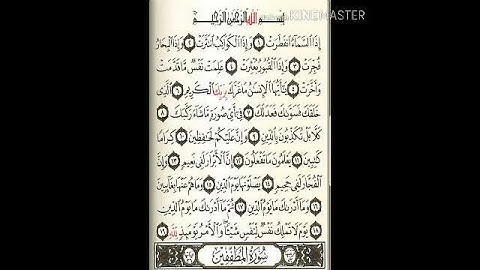 KINEMASTER
بِسْمِ اللَّهِ الرَّحْمَٰنِ الرَّحِيمِ
إِذَا السَّمَاءُ انفَطَرَتْ ١ وَإِذَا الْكَوَاكِبُ انتَثَرَتْ ٢ وَإِذَا الْبِحَارُ
فُجِّرَتْ ٣ وَإِذَا الْقُبُورُ بُعْثِرَتْ ٤ عَلِمَتْ نَفْسٌ مَّا قَدَّمَتْ
وَأَخَّرَتْ ٥ يَا أَيُّهَا الْإِنسَانُ مَا غَرَّكَ بِرَبِّكَ الْكَرِيمِ ٦ الَّذِي
خَلَقَكَ فَسَوَّاكَ فَعَدَلَكَ ٧ فِي أَيِّ صُورَةٍ مَّا شَاءَ رَكَّبَكَ ٨
كَلَّا بَلْ تُكَذِّبُونَ بِالدِّينِ ٩ وَإِنَّ عَلَيْكُمْ لَحَافِظِينَ ١٠ كِرَامًا
كَاتِبِينَ ١١ يَعْلَمُونَ مَا تَفْعَلُونَ ١٢ إِنَّ الْأَبْرَارَ لَفِي نَعِيمٍ ١٣ وَإِنَّ
الْفُجَّارَ لَفِي جَحِيمٍ ١٤ يَصْلَوْنَهَا يَوْمَ الدِّينِ ١٥ وَمَا هُمْ عَنْهَا بِغَائِبِينَ
١٦ وَمَا أَدْرَاكَ مَا يَوْمُ الدِّينِ ١٧ ثُمَّ مَا أَدْرَاكَ مَا يَوْمُ الدِّينِ
١٨ يَوْمَ لَا تَمْلِكُ نَفْسٌ لِّنَفْسٍ شَيْئًا وَالْأَمْرُ يَوْمَئِذٍ لِّلَّهِ ١٩
سُورَةُ الْمُطَفِّفِينَ